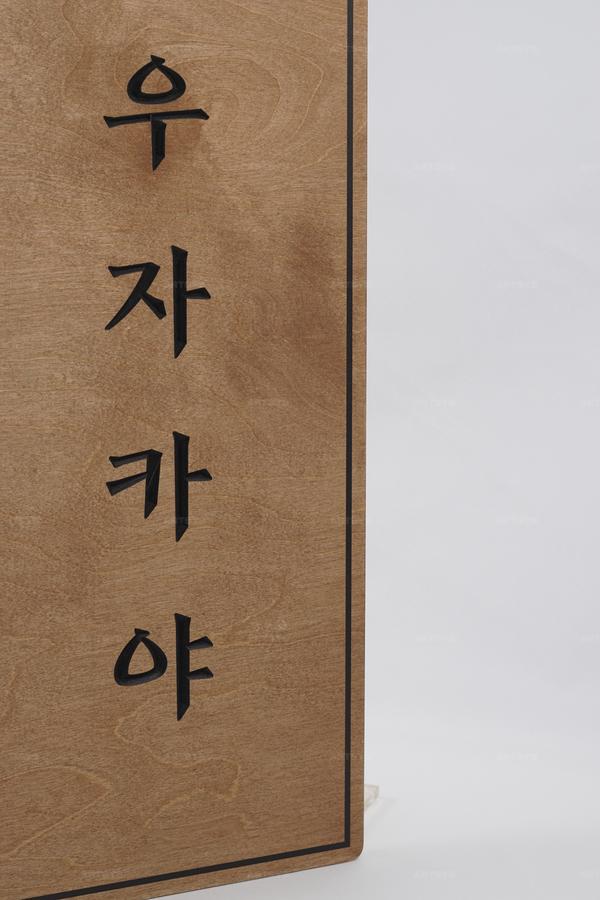 우자카야